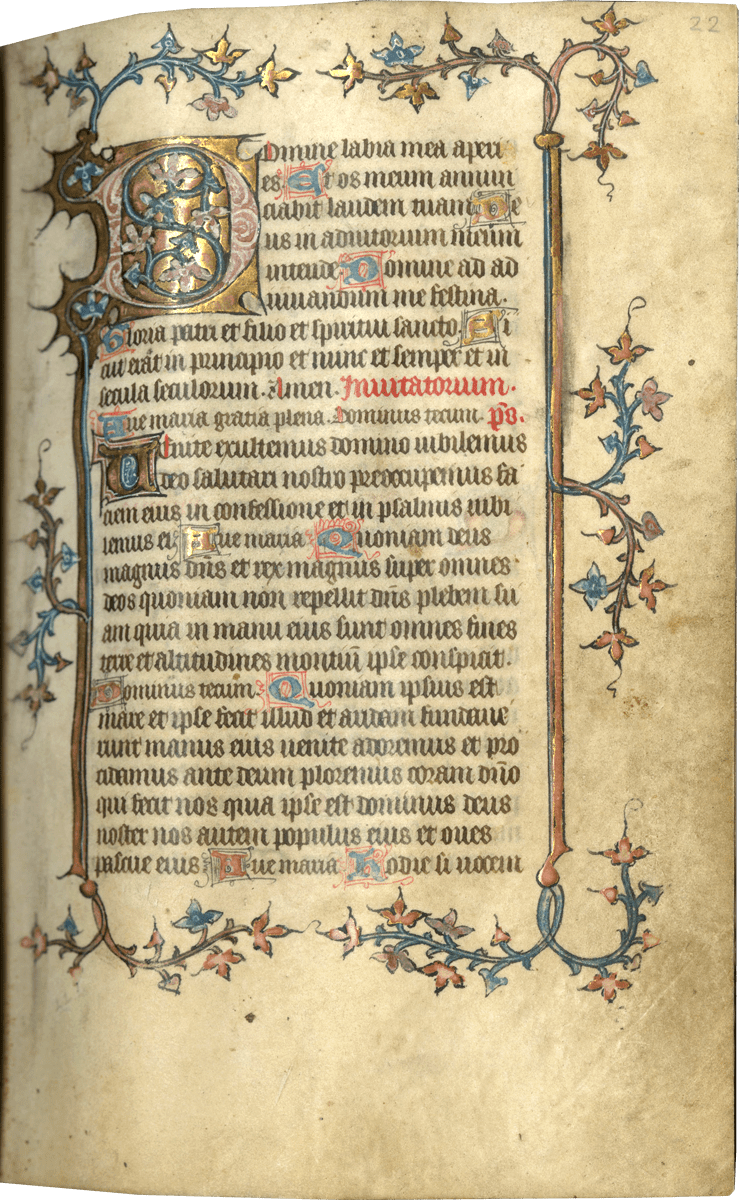 22
Domine labia mea aperi
es. Et os meum annun
ciabit laudem tuam. De
us in adiutorium meum
intende. Domine ad ad
iuuandum me festina.
Gloria patri et filio et spiritui sancto. Si
cut erat in principio et nunc et semper et in
secula seculorum. Amen. Inuitatorium.
Aue maria gratia plena. Dominus tecum. p̄s.
Uenite exultemus domino iubilemus
deo salutari nostro preoccupemus fa
ciem eius in confessione et in psalmis iubi
lemus ei. Aue maria. Quoniam deus
magnus dn̄s et rex magnus super omnes
deos quoniam non repellit dn̄s plebem su
am quia in manu eius sunt omnes fines
terre et altitudines montiū ipse conspicit.
Dominus tecum. Quoniam ipsius est
mare et ipse fecit illud et aridam fundaue
runt manus eius uenite adoremus et pro
cidamus ante deum ploremus coram dn̄o
qui fecit nos quia ipse est dominus deus
noster nos autem populus eius et oues
pascue eius. Aue maria. Hodie si uocem